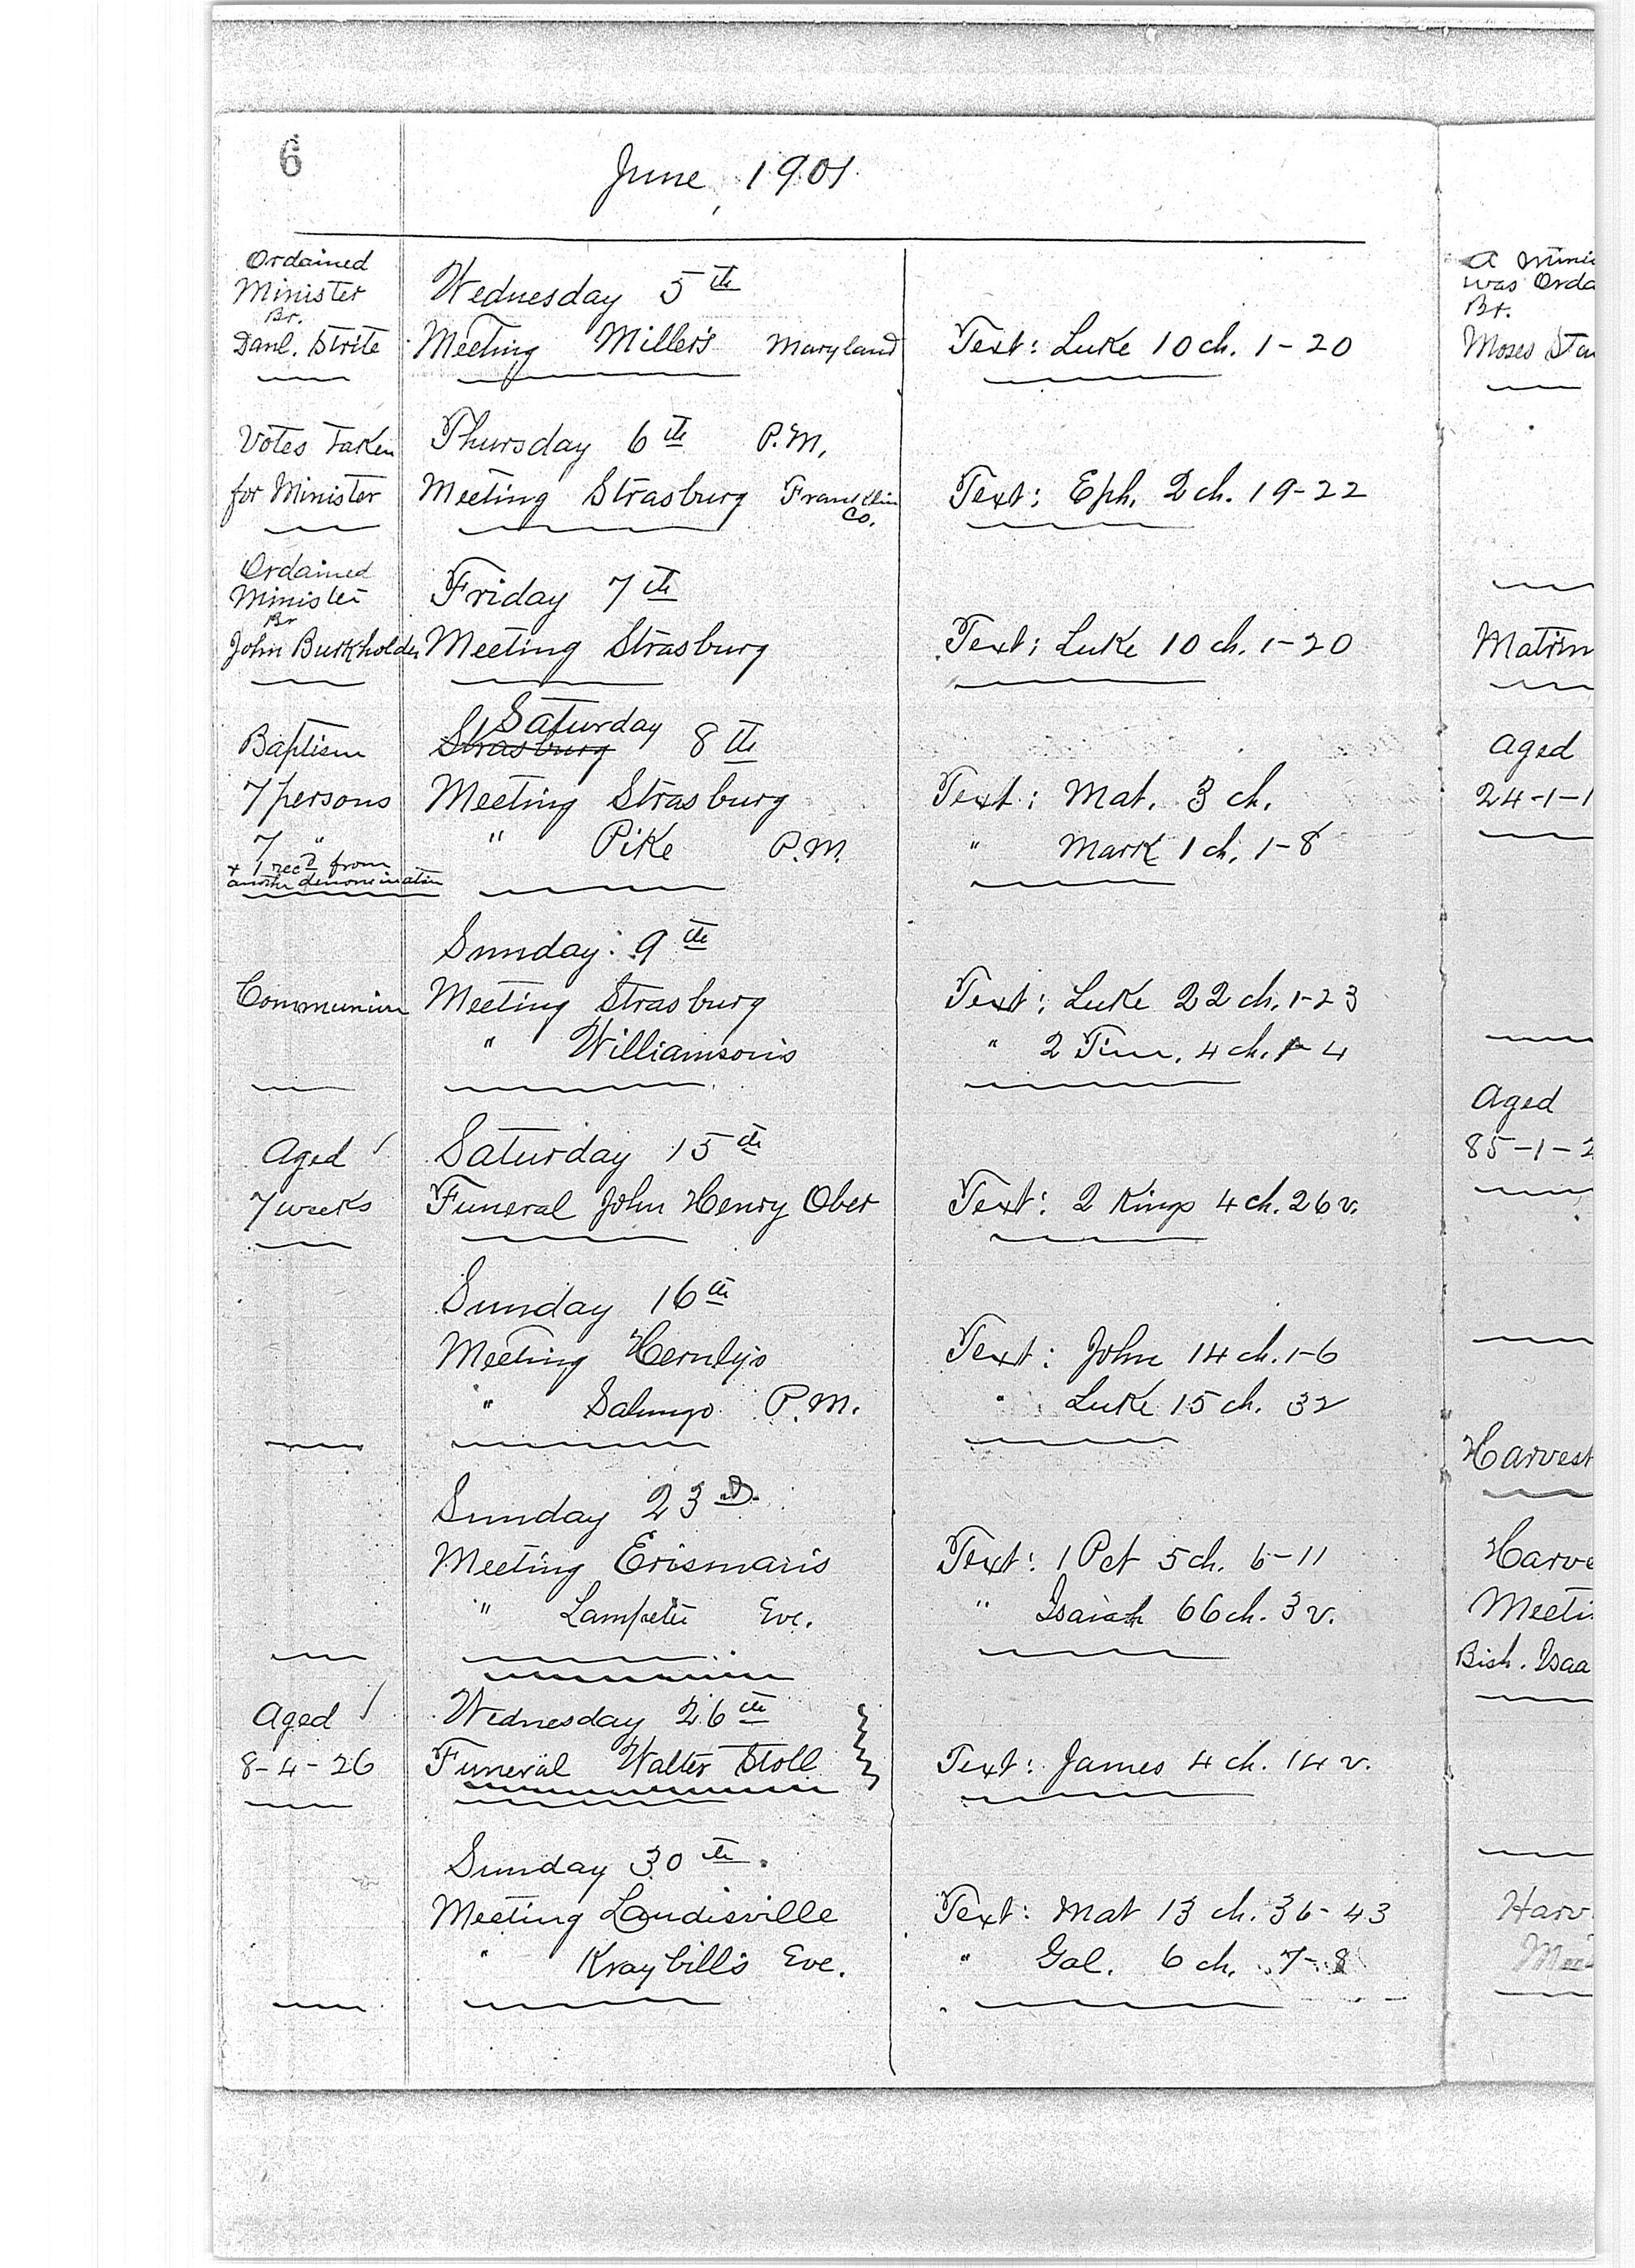 6
June, 1901.
Ordained
Minister Wednesday 5th
Br.
Danl. Strite Meeting Miller's Maryland Text: Luke 10 ch. 1-20
Votes Taken Thursday 6th P.M.
for Minister Meeting Strasburg Franklin Co. Text: Eph. 2 ch. 19-22
Ordained
Minister Friday 7th
Br
John Burkholder Meeting Strasburg Text: Luke 10 ch. 1-20
Saturday
Baptism Strasburg 8th
7 persons Meeting Strasburg Text: Mat. 3 ch.
7 " " Pike P.M. " Mark 1 ch. 1-8
+ 1 rec'd from
another denomination
Sunday 9th
Communion Meeting Strasburg Text: Luke 22 ch. 1-23
" Williamson's " 2 Tim. 4 ch. 1-4
Aged Saturday 15th
7 weeks Funeral John Henry Ober Text: 2 Kings 4 ch. 26 v.
Sunday 16th
Meeting Hernly's Text: John 14 ch. 1-6
" Salunga P.M. " Luke 15 ch. 32
Sunday 23d
Meeting Erisman's Text: 1 Pet 5 ch. 6-11
" Lampeter Eve. " Isaiah 66 ch. 3 v.
Aged Wednesday 26th
8-4-26 Funeral Walter Stoll Text: James 4 ch. 14 v.
Sunday 30th.
Meeting Landisville Text: Mat 13 ch. 36-43
" Kraybill's Eve. " Gal. 6 ch. 7-8
A
was
Br.
Moses
Aged
24-1-1
Aged
85-1-2
Harvest
Bish.